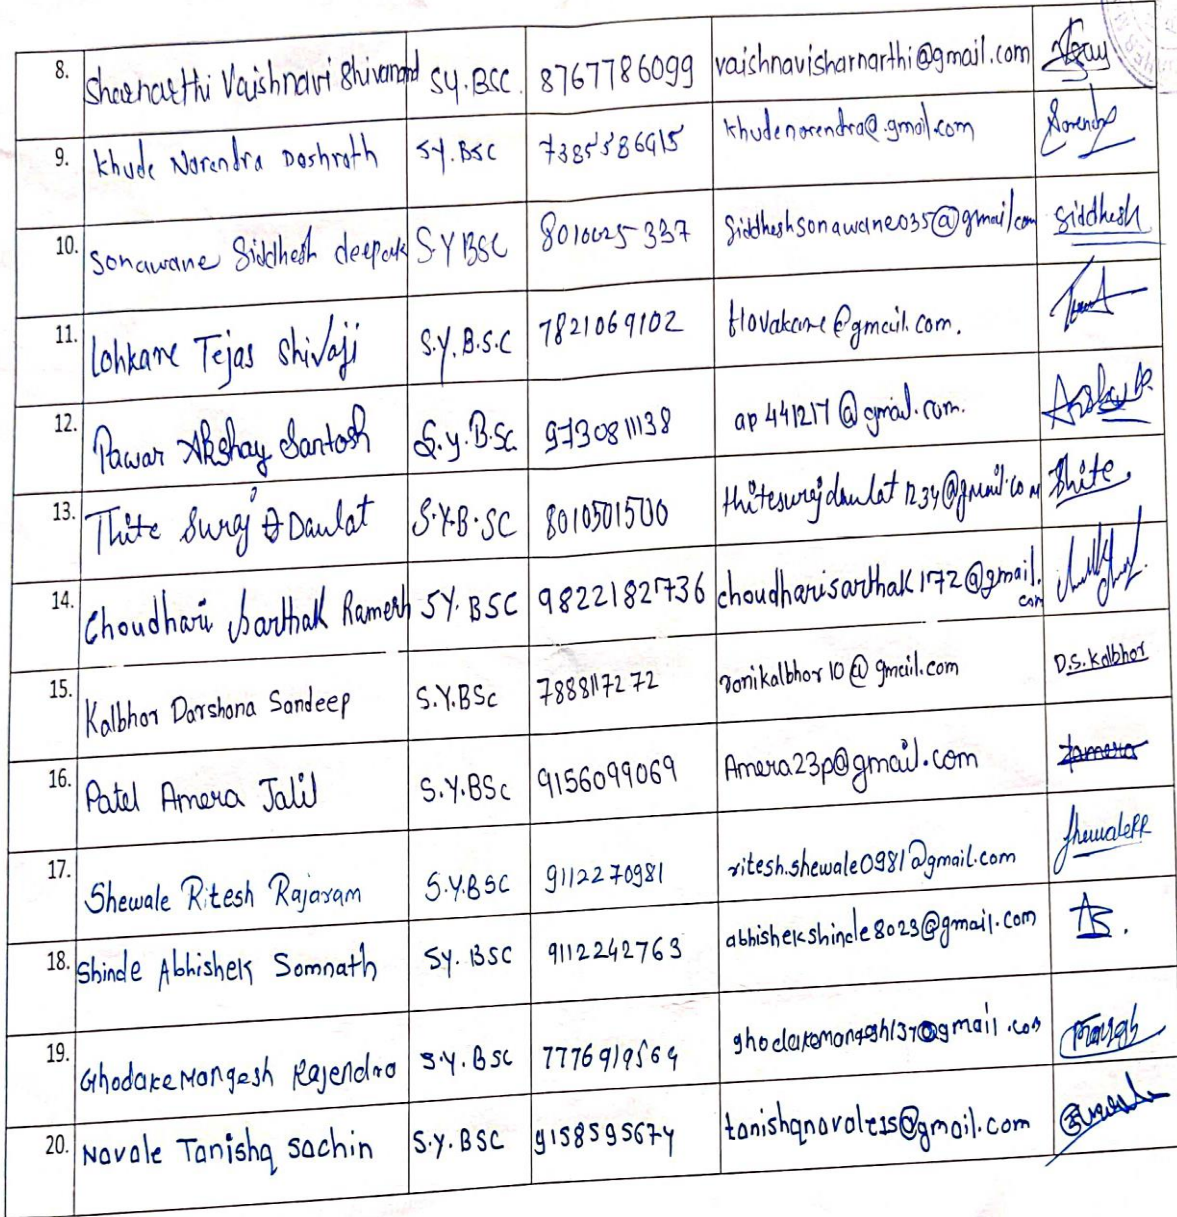 8. Sharnarthi Vaishnavi Shivanand SY.BSC. 8767786099 vaishnavisharnarthi@gmail.com
9. Khude Narendra Dashrath SY.BSC 7385586915 khudenarendra@.gmail.com Narendra
10. Sonawane Siddhesh deepak S.Y BSC 8010025337 Siddheshsonawane035@gmail.com Siddhesh
11. Lohkare Tejas Shivaji S.Y.B.S.C 7821069102 tlovakare@gmail.com.
12. Pawar Akshay Santosh S.y.B.Sc 9730811138 ap441217@gmail.com.
13. Thite Suraj Daulat S.Y.B.SC 8010501500 thitesurajdaulat1234@gmail.com Thite
14. Choudhari Sarthak Ramesh SY.BSC 9822182736 choudharisarthak172@gmail.
com
15. Kalbhor Darshana Sandeep S.Y.BSc 7888117272 ranikalbhor10@gmail.com D.S.Kalbhor
16. Patel Amera Jalil S.Y.BSc 9156099069 Amera23p@gmail.com
17. Shewale Ritesh Rajaram S.Y.BSC 9112270981 ritesh.shewale0981@gmail.com ShewaleRR
18. Shinde Abhishek Somnath SY.BSC 9112242763 abhishekshinde8023@gmail.com AS.
19. Ghodake Mangesh Rajendra S.Y.BSC 7776919569
20. Navale Tanishq sachin S.Y.BSC 9158595674 tanishqnavale15@gmail.com